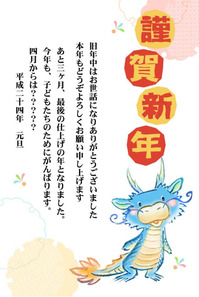 謹賀新年
旧年中はお世話になりありがとうございました
本年もどうぞよろしくお願い申し上げます
あと三ヶ月、最後の仕上げの年となりました。
今年も、子どもたちのためにがんばります。
四月からは？？？？？
平成二十四年　元旦